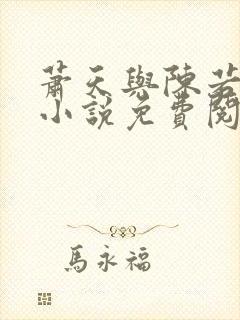 蕭天與陳若
小說免費閱
馬永福